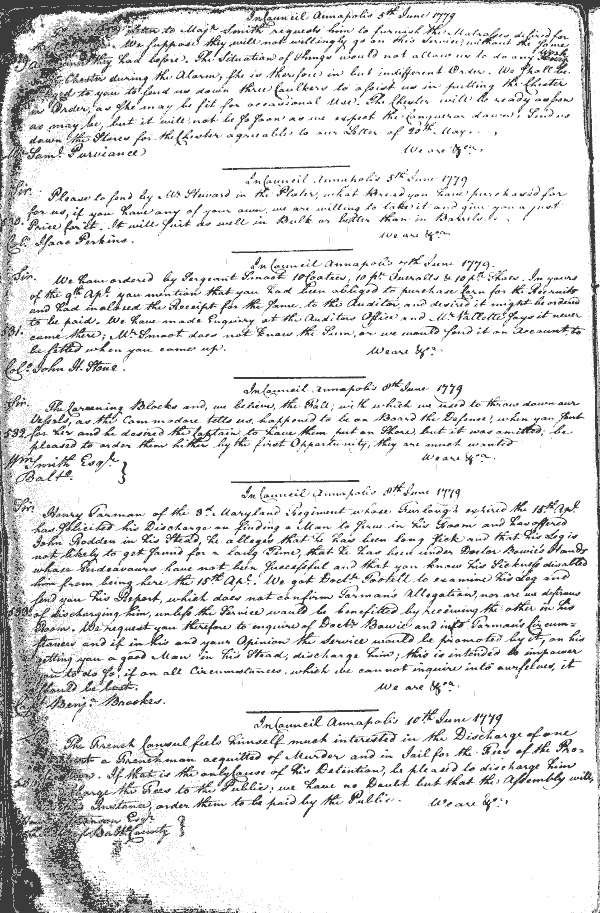 In Council Annapolis 5th June 1779
Letter to Majr Smith requests him to furnish the Matrosses desired for
We suppose they will not willingly go on this Service, without the same
they had before. The Situation of things would not allow us to do any
Chester during the Alarm, She is therefore in but indifferent Order. We shall be
to you to send us down three Caulkers to assist us in putting the Chester
in Order, as She may be fit for occasional Use. The Chester will be ready as soon
as may be, but it will not be so soon as we expect the Conqueror down. Send us
down the Stores for the Chester agreeable to our Letter of 20th May.
We are &ca.
Saml. Purviance
In Council Annapolis 5th June 1779
Sir.
Please to send by Mr Steward in the Plater, what Bread you have purchased for
for us, if you have any of your own, we are willing to take it and give you a just
Price for it. It will suit as well in Bulk or better than in Barrels.
We are &ca.
Colo. Isaac Perkins.
In Council Annapolis 7th June 1779
Sir.
We have ordered by Sergeant Smoot 10 Coatees, 10 pr. Overalls & 10 pr. Shoes. In yours
of the 9th Apl. you mention that you had been obliged to purchase Corn for the Recruits
and had inclosed the Receipt for the same, to the Auditor, and desired it might be ordered
to be paid. We have made Enquiry at the Auditors Office and Mr Vallette says it never
531. came there; Mr Smoot does not know the Sum, or we would send it on Account, to
be settled when you come up.
We are &ca.
Colo. John H. Stone.
In Council Annapolis 8th June 1779
Sir.
The Careening Blocks and, we believe, the Fall, with which we used to throw down our
Vessels, as the Commodore tells us, happened to be on Board the Defence, when you sent
532. for her and he desired the Captain to have them put on Shore, but it was omitted, be
pleased to order them hither by the first Opportunity, they are much wanted
We are &ca
Wm Smith Esqr.
Balto.
In Council Annapolis 8th June 1779
Sir.
Henry Tarman of the 3d. Maryland Regiment whose Furlough expired the 15th Apl.
has solicited his Discharge on finding a Man to serve in his Room and has offered
John Rodden in his Stead, he alleges that he has been long sick and that his Leg is
not likely to get sound for a long Time, that he has been under Doctor Bowie's Hands
whose Endeavours have not been successful and that you know his Sickness disabled
him from being here the 15th Apl. We got Doctr. to examine his Leg and
send you his Report, which does not confirm Tarman's Allegation, nor are we desirous
of discharging him, unless the Service would be benefitted by receiving the other in his
Room. We request you therefore to enquire of Doctr Bowie and into Tarman's Circum-
stances and if in his and your Opinion the Service would be promoted by it, on his
getting you a good Man in his Stead, discharge him; this is intended to impower
you to do so, if on all Circumstances, which we cannot inquire into ourselves, it
should be best.
We are &ca.
Benja. Brookes.
In Council Annapolis 10th June 1779
The French Consul feels himself much interested in the Discharge of one
a Frenchman acquitted of Murder and in Jail for the Fees of the Pro-
If that is the only Cause of his Detention, be pleased to discharge him
the Fees to the Public; we have no Doubt but that the Assembly will,
Instance, order them to be paid by the Public.
We are &ca.
Esqr
Balto County